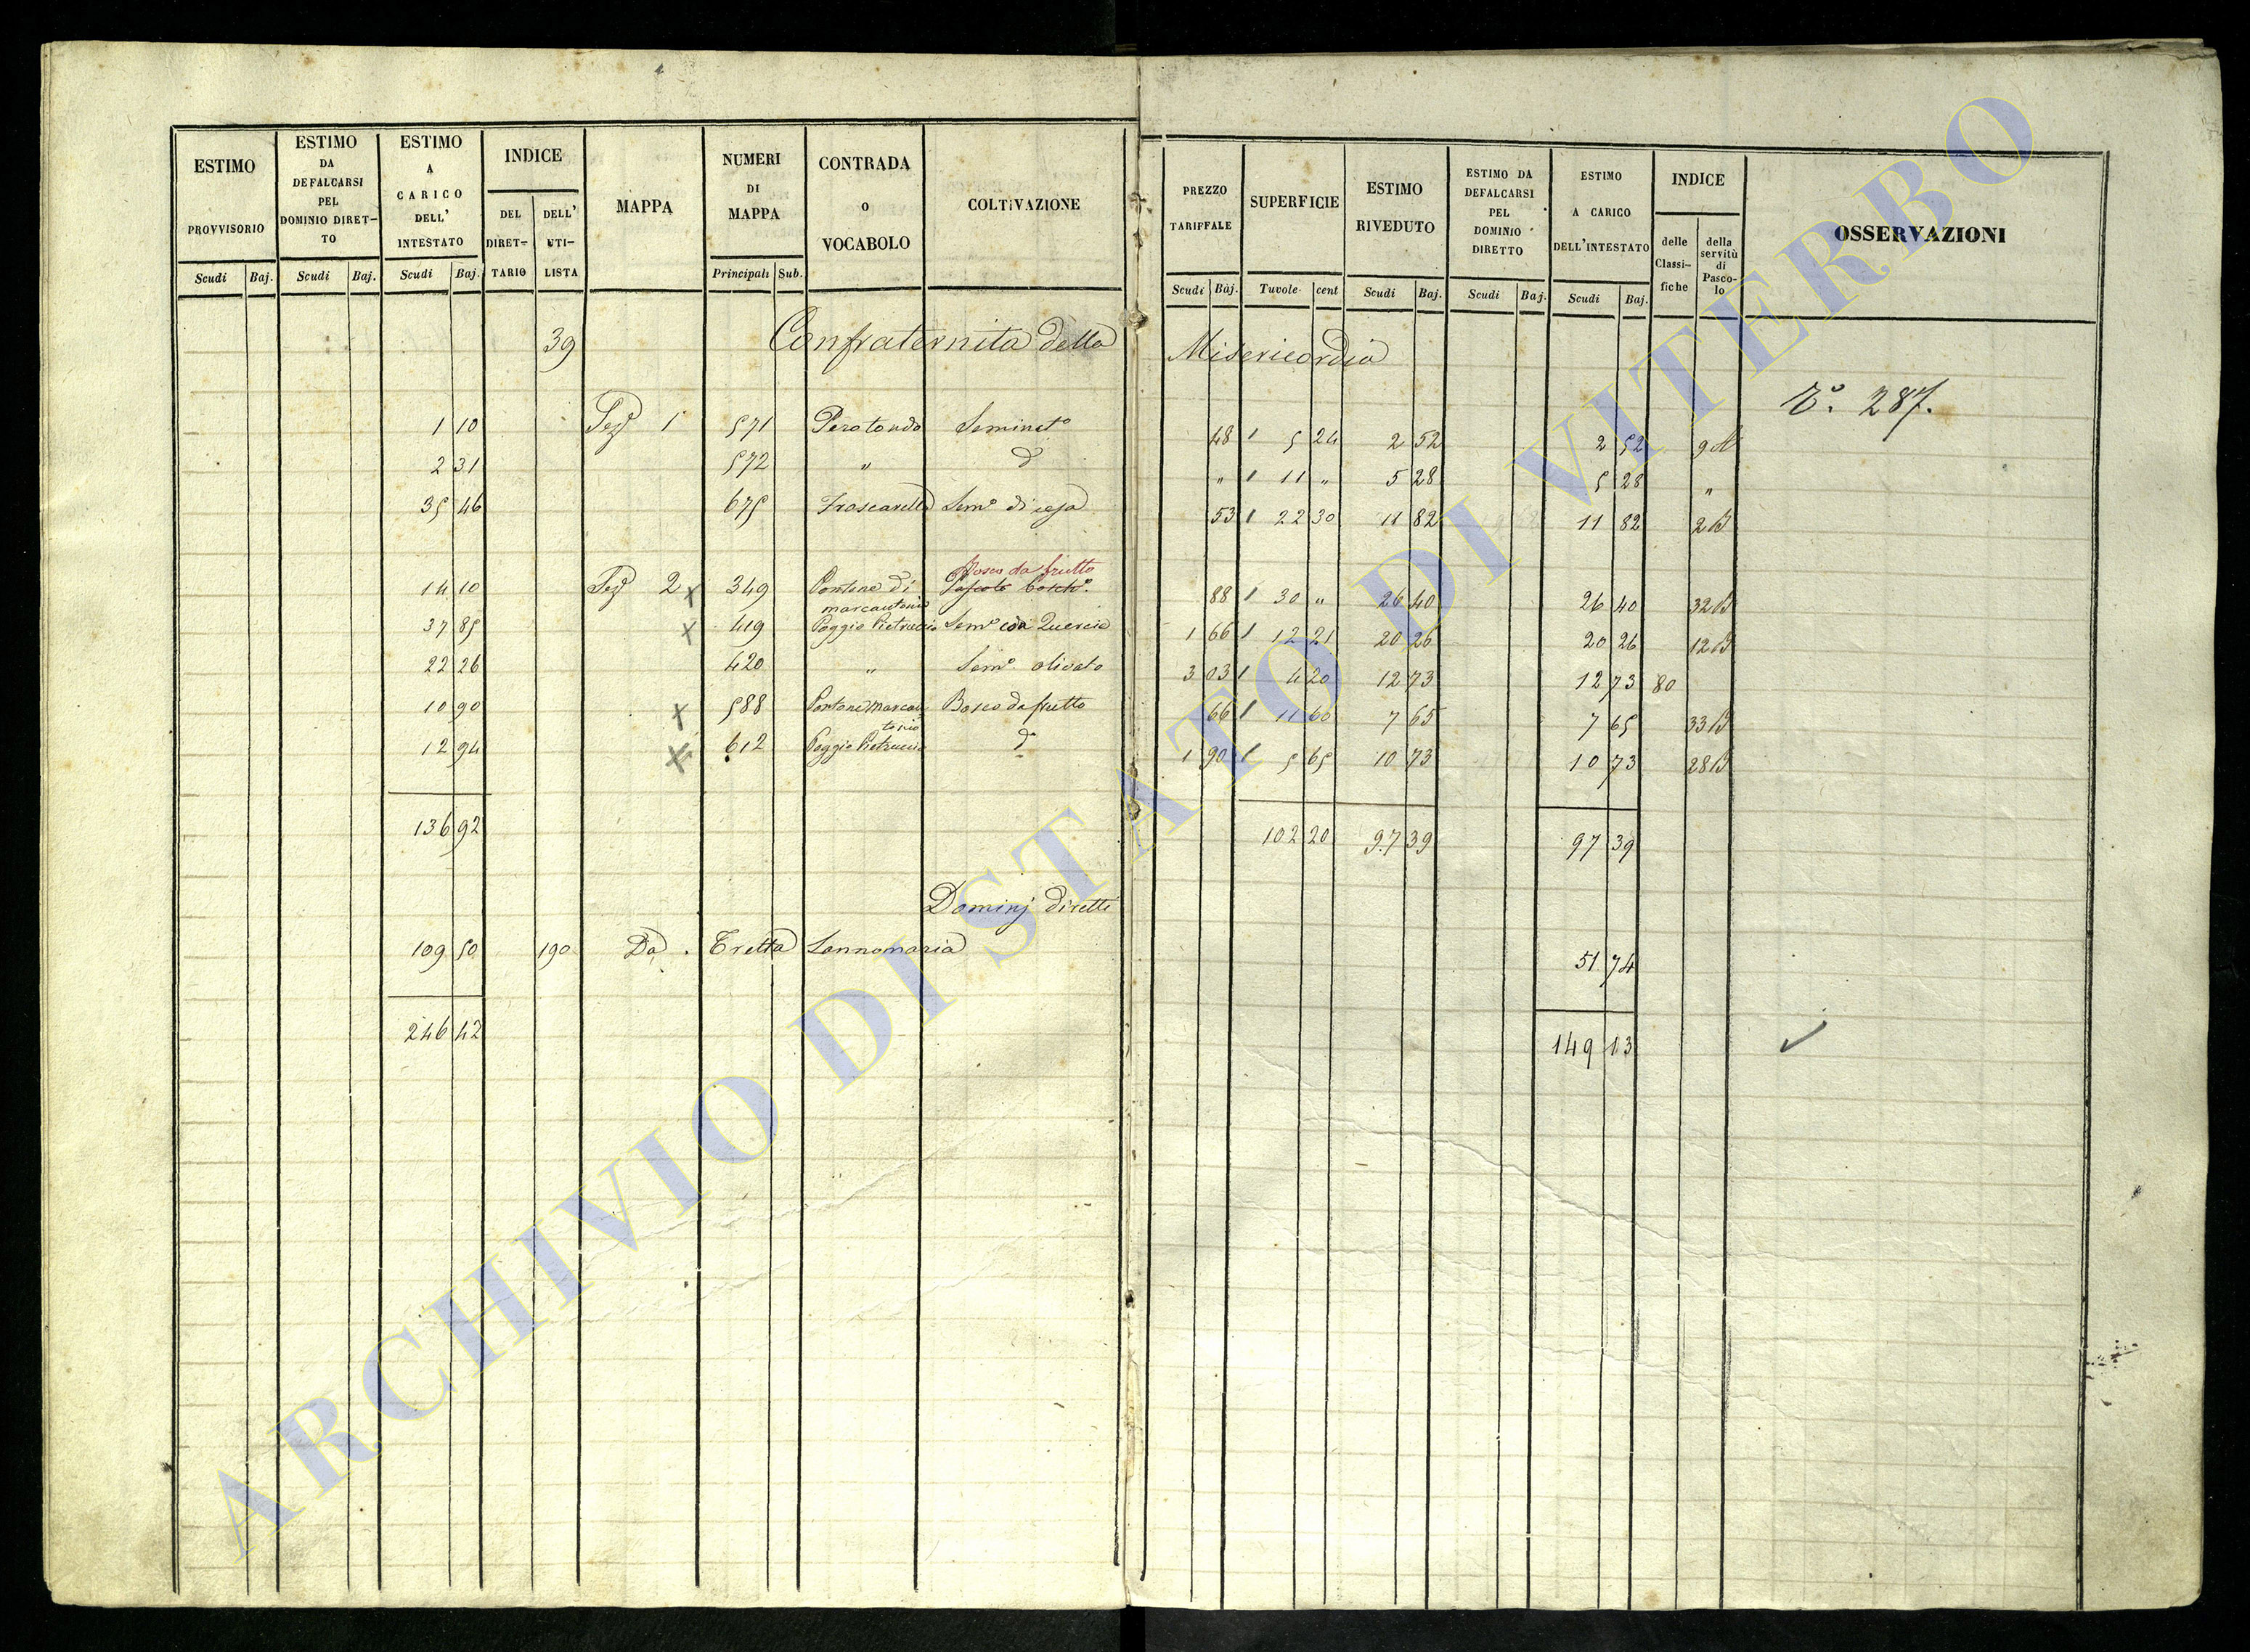 ESTIMO PROVVISORIO | ESTIMO DA DEFALCARSI PEL DOMINIO DIRET-TO | ESTIMO A CARICO DELL' INTESTATO | INDICE DEL DIRET-TARIO | DELL' UTI-LISTA | MAPPA | NUMERI DI MAPPA | CONTRADA O VOCABOLO | COLTIVAZIONE | PREZZO TARIFFALE | SUPERFICIE | ESTIMO RIVEDUTO | ESTIMO DA DEFALCARSI PEL DOMINIO DIRETTO | ESTIMO A CARICO DELL'INTESTATO | INDICE delle Classi-fiche | della servitù di Pasco-lo | OSSERVAZIONI
Scudi Baj. Scudi Baj. Scudi Baj. Principali Sub. Scudi Baj. Tavole cent Scudi Baj. Scudi Baj. Scudi Baj.
39 Confraternita della Misericordia
Vo. 287.
1 10 Sezе 1 571 Perotondo Seminato 48 1 5 24 2 52 2 52 9 A
2 31 572 " do " 1 11 " 5 28 5 28 "
35 46 675 Frascarella Semo di cesa 53 1 22 30 11 82 11 82 2 B
Bosco da frutto
14 10 Sez 2 x 349 Pontone di Pascolo boschо. 88 1 30 " 26 40 26 40 32 B
marcantonio
37 85 x 419 Poggio Pietruccio Semo con Quercie 1 66 1 12 21 20 26 20 26 12 B
22 26 420 " Semo olivato 3 03 1 4 20 12 73 12 73 80
10 90 x 588 Pontone Marcan Bosco da frutto 66 1 11 60 7 65 7 65 33 B
tonio
12 94 x 612 Poggio Pietruccio do 1 90 1 5 65 10 73 10 73 28 B
136 92 102 20 97 39 97 39
Dominj diretti
109 50 190 Da Tretta Sannomaria 51 74
246 42 149 13
ARCHIVIO DI STATO DI VITERBO